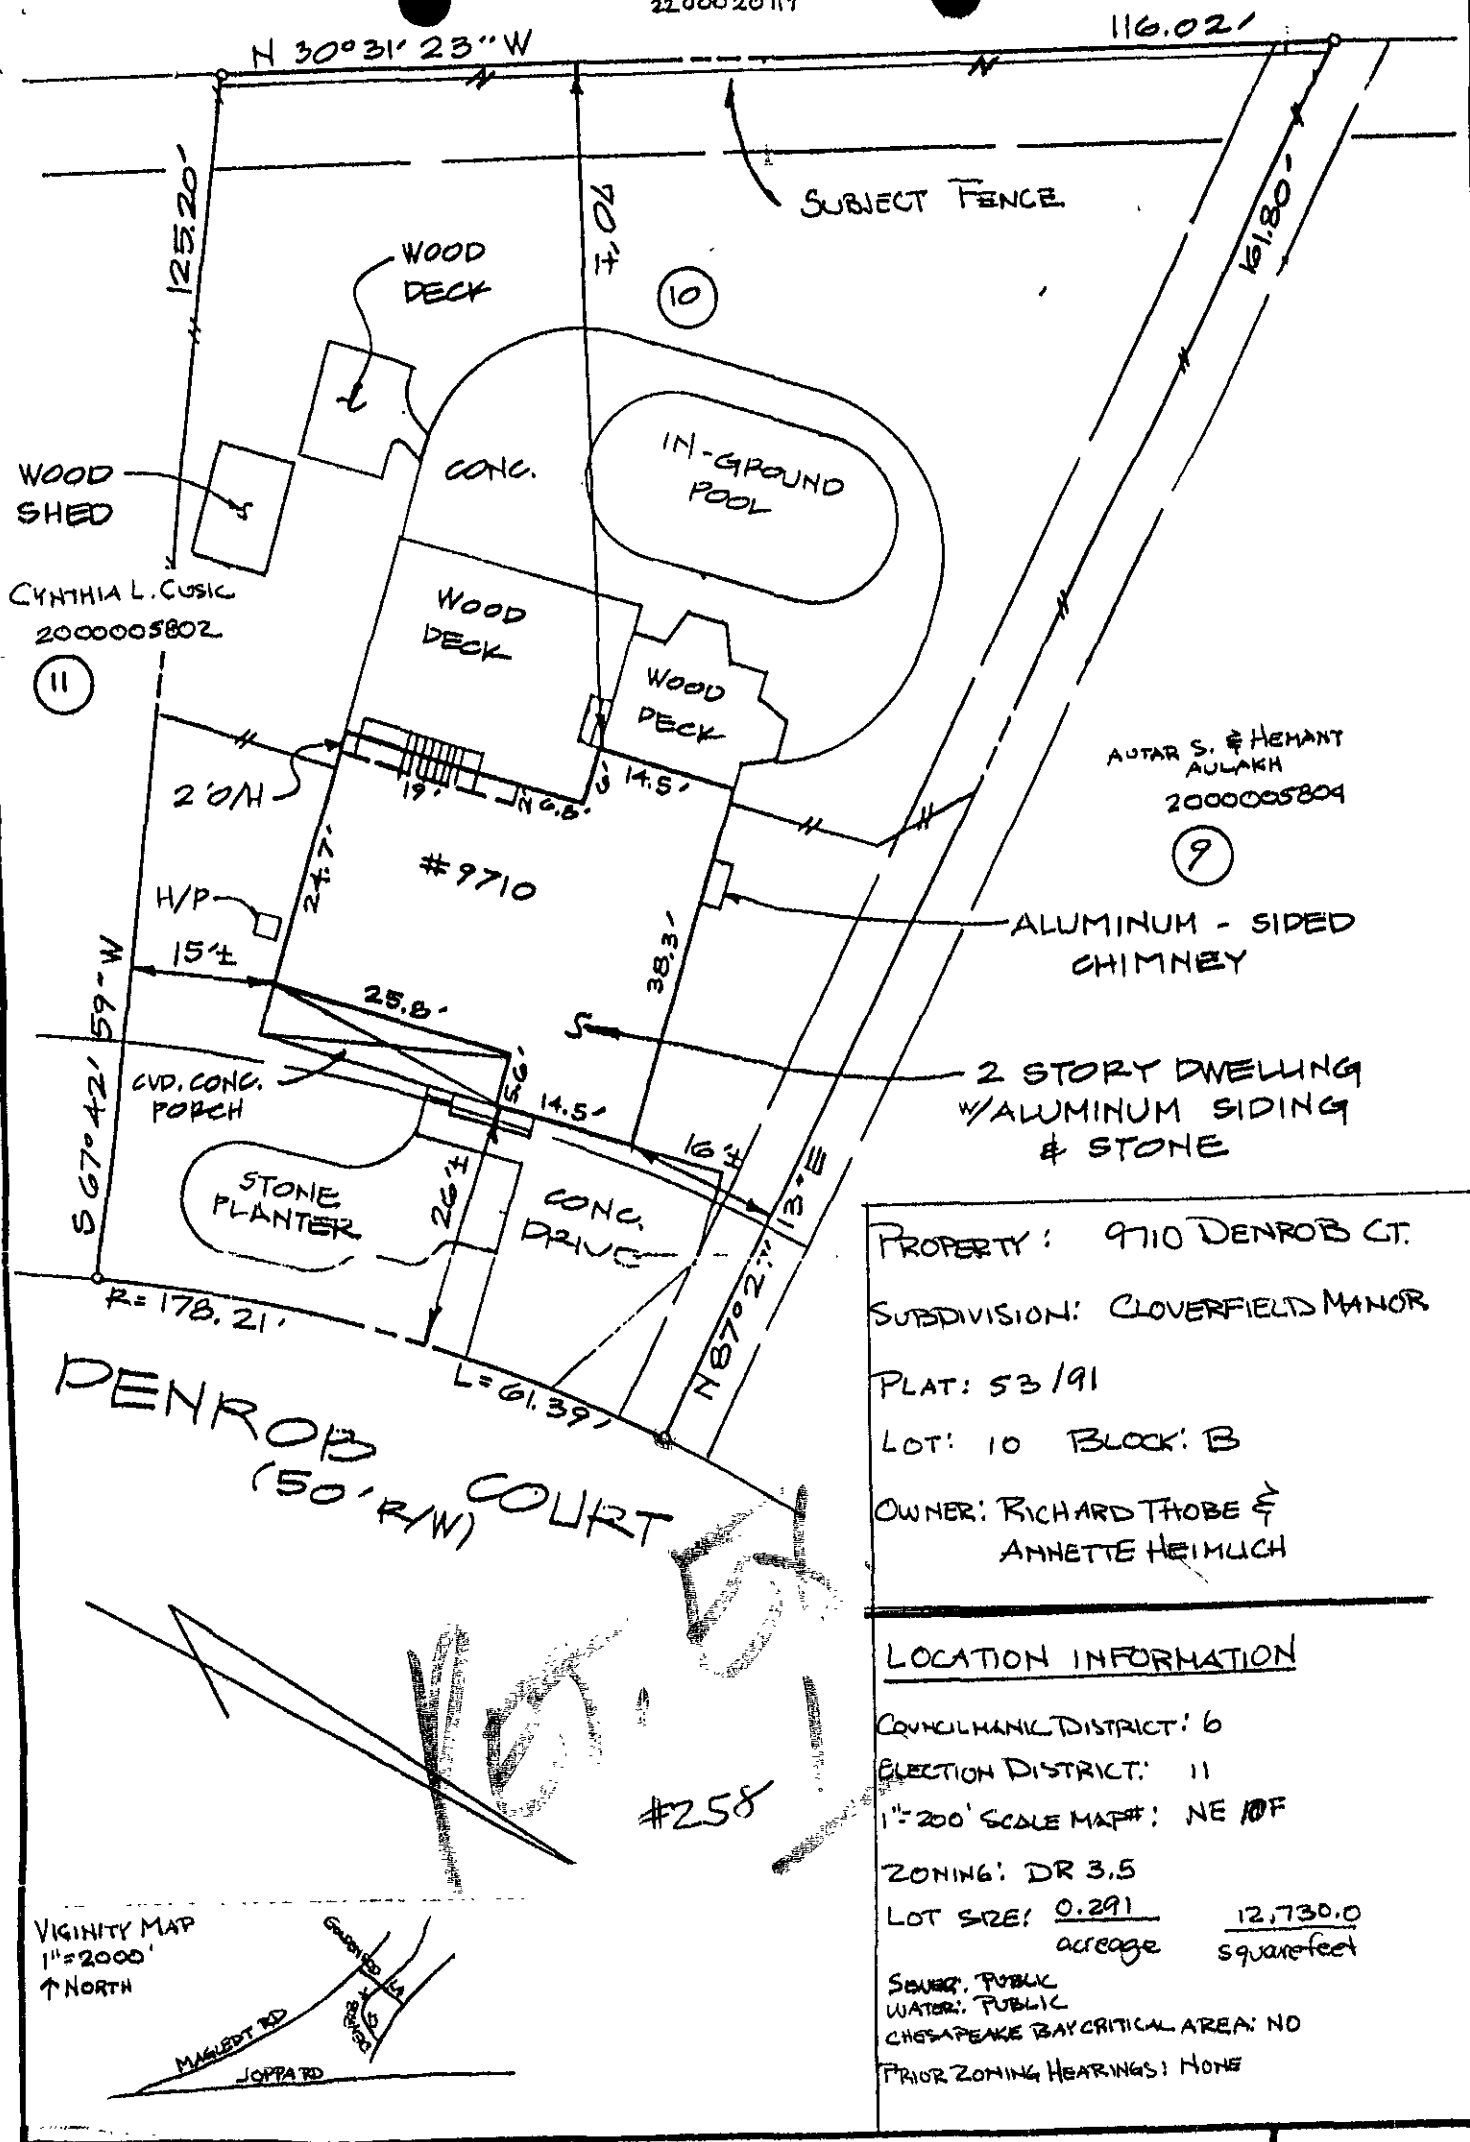 N 30°31'23"W
116.02'
125.20'
70'±
SUBJECT FENCE
161.80'
WOOD
DECK
10
WOOD
SHED
CONC.
IN-GROUND
POOL
CYNTHIA L. CUSIC
2000005802
11
WOOD
DECK
WOOD
DECK
AUTAR S. & HEMANT
AULAKH
2000005804
9
2'O/H
19'
6.8'
14.5'
24.7'
#9710
H/P
15'±
38.3'
ALUMINUM - SIDED
CHIMNEY
25.8'
CVD. CONC.
PORCH
5.6'
14.5'
16'±
2 STORY DWELLING
W/ALUMINUM SIDING
& STONE
S 67°42'59"W
STONE
PLANTER
26'±
CONC.
DRIVE
R=178.21'
L=61.39'
DENROB
COURT
(50' R/W)
#258
PROPERTY: 9710 DENROB CT.
SUBDIVISION: CLOVERFIELD MANOR
PLAT: 53/91
LOT: 10 BLOCK: B
OWNER: RICHARD THOBE &
ANNETTE HEIMLICH
LOCATION INFORMATION
COUNCILMANIC DISTRICT: 6
ELECTION DISTRICT: 11
1"=200' SCALE MAP#: NE
ZONING: DR 3.5
LOT SIZE: 0.291 12,730.0
acreage square feet
SEWER: PUBLIC
WATER: PUBLIC
CHESAPEAKE BAY CRITICAL AREA: NO
PRIOR ZONING HEARINGS: NONE
VICINITY MAP
1"=2000'
↑ NORTH
MAGLEDT RD
JOPPA RD